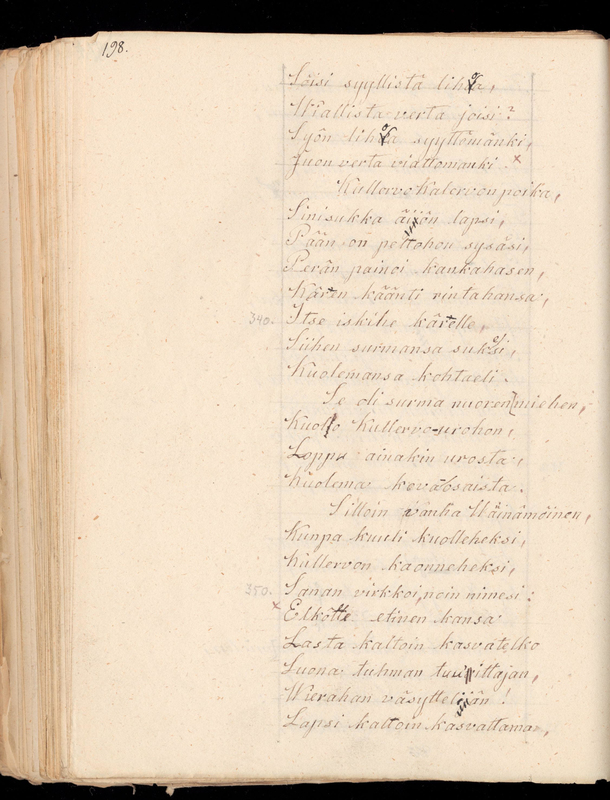 198.
Söisi syyllistä lihoa,
Wiallista verta joisi?
Syön lihoa syyttömänki,
Juon verta viattomanki. ×
Kullervo Kalervon poika,
Sinisukka äijön lapsi,
Pään on peltohon sysäsi,
Perän painoi kankahasen,
Kären käänti rintahansa,
340. Itse iskihe kärelle,
Siihen surmansa suksi,
Kuolemansa kohtaeli.
Se oli surma nuoren miehen,
Kuolo Kullervo urohon,
Loppu ainakin urosta,
Kuolema kovaosaista.
Silloin vanha Wäinämöinen,
Kunpa kuuli kuolleheksi,
Kullervon kaonneheksi,
350. Sanan virkkoi, noin nimesi:
× Elkötte etinen kansa
Lasta kaltoin kasvatelko
Luona tuhman tuuittajan,
Wierahan väsyttelijän!
Lapsi kaltoin kasvattama,